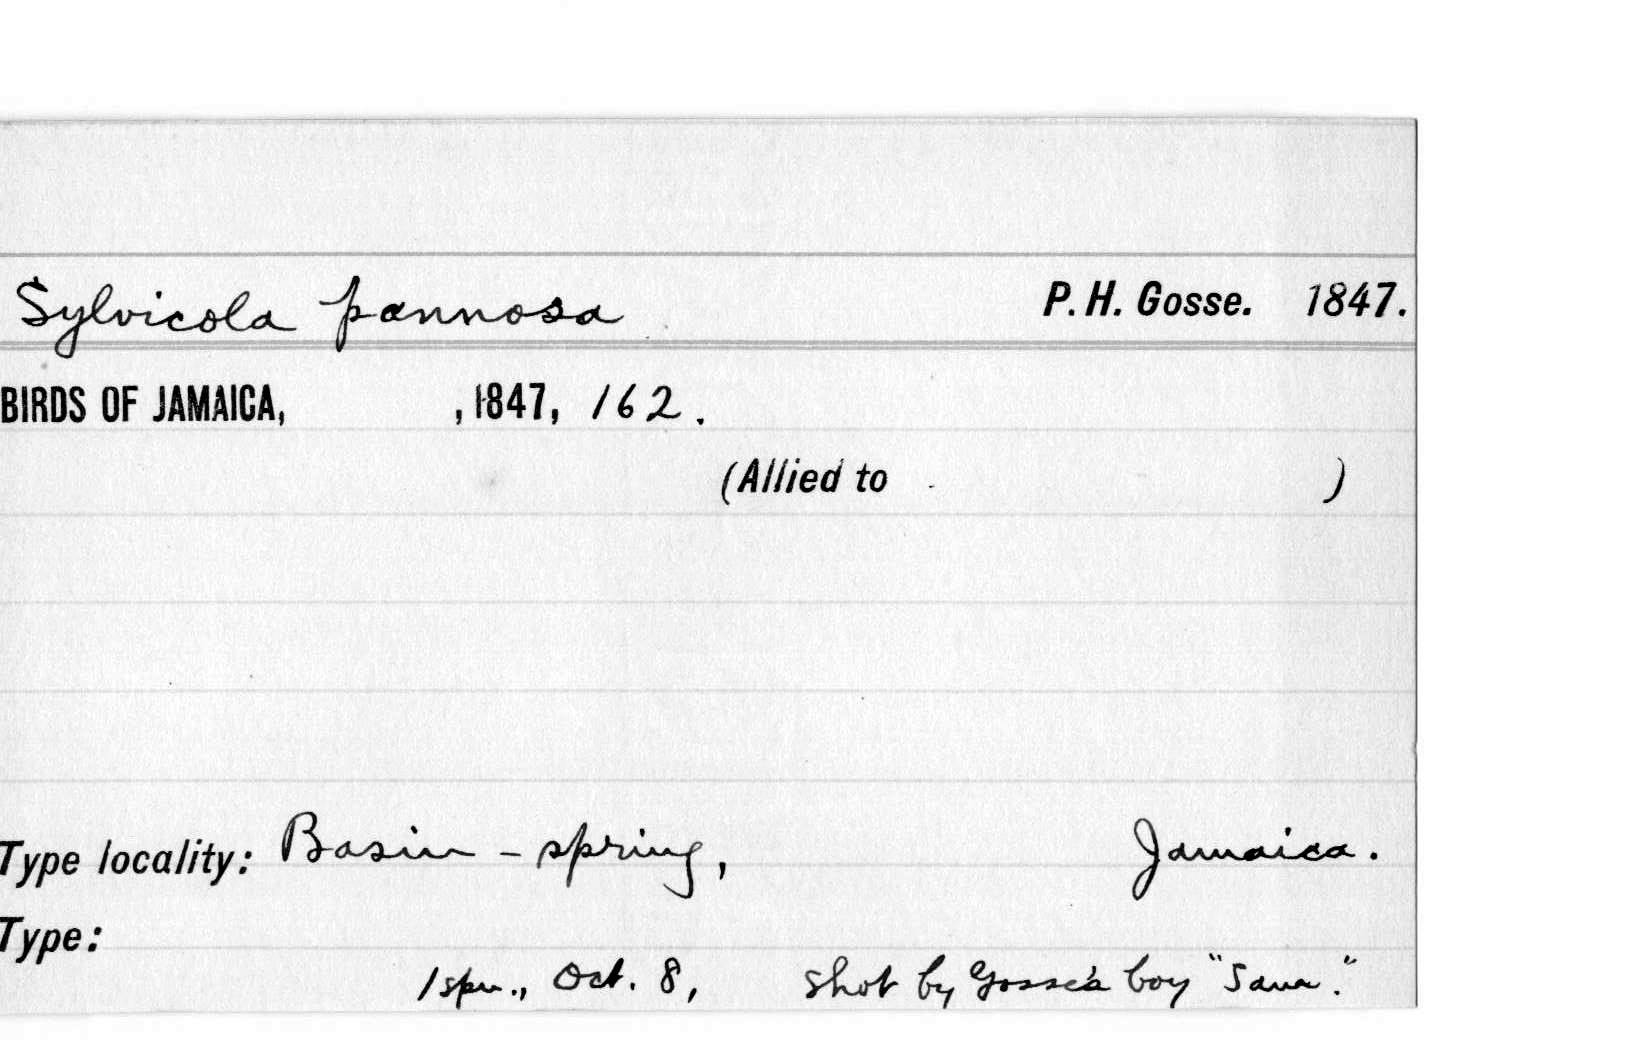 Sylvicola pannosa P. H. Gosse. 1847.
BIRDS OF JAMAICA, , 1847, 162.
(Allied to )
Type locality: Basin-spring, Jamaica.
Type:
1 spm., Oct. 8, shot by Gosse's boy "Sam."